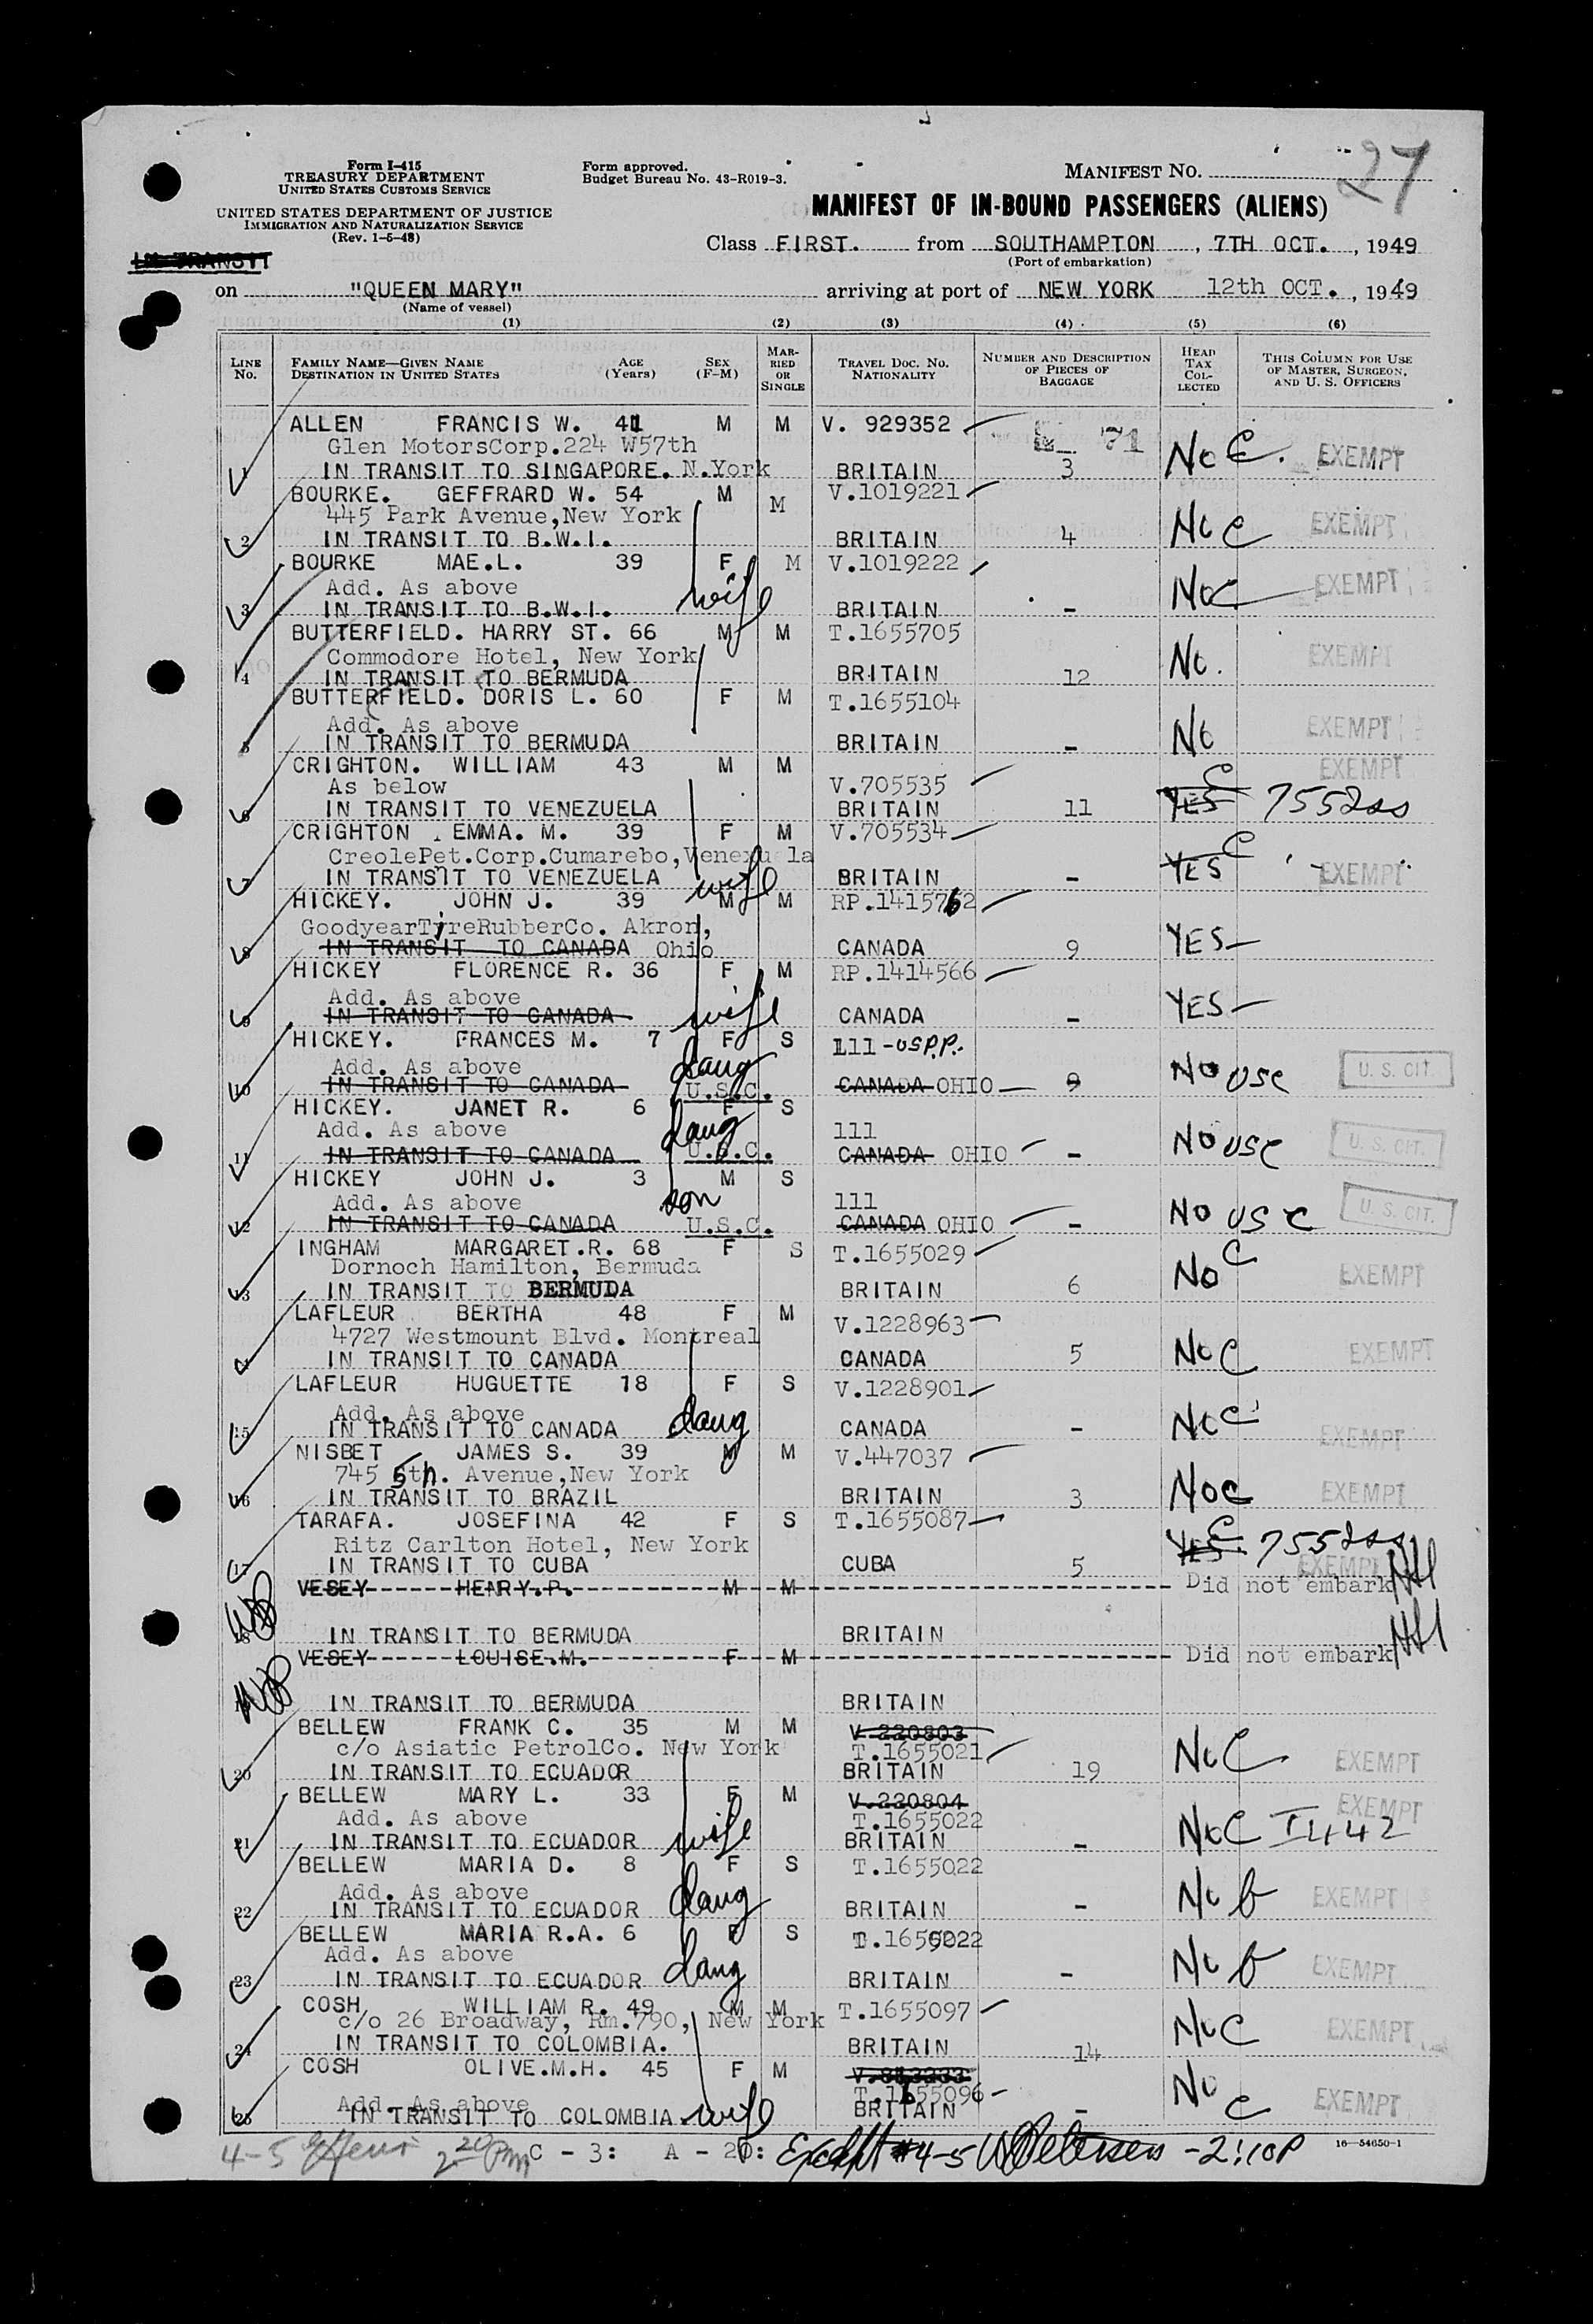 27
Form I-415
TREASURY DEPARTMENT
UNITED STATES CUSTOMS SERVICE
Form approved.
Budget Bureau No. 43-R019-3.
MANIFEST NO.
UNITED STATES DEPARTMENT OF JUSTICE
IMMIGRATION AND NATURALIZATION SERVICE
(Rev. 1-5-48)
MANIFEST OF IN-BOUND PASSENGERS (ALIENS)
IN TRANSIT
Class FIRST. from SOUTHAMPTON, 7TH OCT., 1949
(Port of embarkation)
on "QUEEN MARY" arriving at port of NEW YORK 12th OCT., 1949
(Name of vessel)
(1) (2) (3) (4) (5) (6)
LINE No. FAMILY NAME—GIVEN NAME DESTINATION IN UNITED STATES AGE (Years) SEX (F-M) MARRIED OR SINGLE TRAVEL DOC. NO. NATIONALITY NUMBER AND DESCRIPTION OF PIECES OF BAGGAGE HEAD TAX COLLECTED THIS COLUMN FOR USE OF MASTER, SURGEON, AND U. S. OFFICERS
ALLEN FRANCIS W. 41 M M V. 929352 71
Glen MotorsCorp.224 W57th
1 IN TRANSIT TO SINGAPORE. N.York BRITAIN 3 No C. EXEMPT
BOURKE. GEFFRARD W. 54 M M V.1019221
445 Park Avenue,New York
2 IN TRANSIT TO B.W.I. BRITAIN 4 No C EXEMPT
BOURKE MAE.L. 39 F M V.1019222
Add. As above wife
3 IN TRANSIT TO B.W.I. BRITAIN - No C EXEMPT
BUTTERFIELD. HARRY ST. 66 M M T.1655705
Commodore Hotel, New York
4 IN TRANSIT TO BERMUDA BRITAIN 12 No. EXEMPT
BUTTERFIELD. DORIS L. 60 F M T.1655104
Add. As above
5 IN TRANSIT TO BERMUDA BRITAIN - No EXEMPT
CRIGHTON. WILLIAM 43 M M V.705535 EXEMPT
As below
6 IN TRANSIT TO VENEZUELA BRITAIN 11 YES C 7552ss
CRIGHTON. EMMA. M. 39 F M V.705534
CreolePet.Corp.Cumarebo,Venezuela
7 IN TRANSIT TO VENEZUELA wife BRITAIN - YES C EXEMPT
HICKEY. JOHN J. 39 M M RP.1415762
GoodyearTyreRubberCo. Akron,
8 IN TRANSIT TO CANADA Ohio CANADA 9 YES
HICKEY FLORENCE R. 36 F M RP.1414566
Add. As above
9 IN TRANSIT TO CANADA wife CANADA - YES
HICKEY. FRANCES M. 7 F S 111-USP.P.
Add. As above daug
10 IN TRANSIT TO CANADA U.S.C. CANADA OHIO 9 No USC U. S. CIT.
HICKEY. JANET R. 6 F S
Add. As above daug 111
11 IN TRANSIT TO CANADA U.S.C. CANADA OHIO - No USC U. S. CIT.
HICKEY JOHN J. 3 M S
Add. As above son 111
12 IN TRANSIT TO CANADA U.S.C. CANADA OHIO - No USC U. S. CIT.
INGHAM MARGARET.R. 68 F S T.1655029
Dornoch Hamilton, Bermuda
13 IN TRANSIT TO BERMUDA BRITAIN 6 No C EXEMPT
LAFLEUR BERTHA 48 F M V.1228963
4727 Westmount Blvd. Montreal
IN TRANSIT TO CANADA CANADA 5 No C EXEMPT
LAFLEUR HUGUETTE 18 F S V.1228901
Add. As above daug
15 IN TRANSIT TO CANADA CANADA - No C EXEMPT
NISBET JAMES S. 39 M M V.447037
745 5th. Avenue,New York
16 IN TRANSIT TO BRAZIL BRITAIN 3 No C EXEMPT
TARAFA. JOSEFINA 42 F S T.1655087
Ritz Carlton Hotel, New York
17 IN TRANSIT TO CUBA CUBA 5 YES C 7552ss EXEMPT
VESEY HENRY.P. M M Did not embark
18 IN TRANSIT TO BERMUDA BRITAIN
VESEY LOUISE.M. F M Did not embark
IN TRANSIT TO BERMUDA BRITAIN
BELLEW FRANK C. 35 M M V.220803
c/o Asiatic PetrolCo. New York T.1655021
20 IN TRANSIT TO ECUADOR BRITAIN 19 No C EXEMPT
BELLEW MARY L. 33 F M V.220804
Add. As above T.1655022
21 IN TRANSIT TO ECUADOR wife BRITAIN - No C I442 EXEMPT
BELLEW MARIA D. 8 F S T.1655022
Add. As above daug
22 IN TRANSIT TO ECUADOR BRITAIN - No b EXEMPT
BELLEW MARIA R.A. 6 F S T.1655022
Add. As above daug
23 IN TRANSIT TO ECUADOR BRITAIN - No b EXEMPT
COSH WILLIAM R. 49 M M T.1655097
c/o 26 Broadway, Rm.790, New York
24 IN TRANSIT TO COLOMBIA. BRITAIN 14 No C EXEMPT
COSH OLIVE.M.H. 45 F M
Add. As above T.1655096
25 IN TRANSIT TO COLOMBIA wife BRITAIN - No C EXEMPT
4-5 2 20 Pm C - 3: A - 20: Except #4-5 Petersen -2:10P 16-54650-1